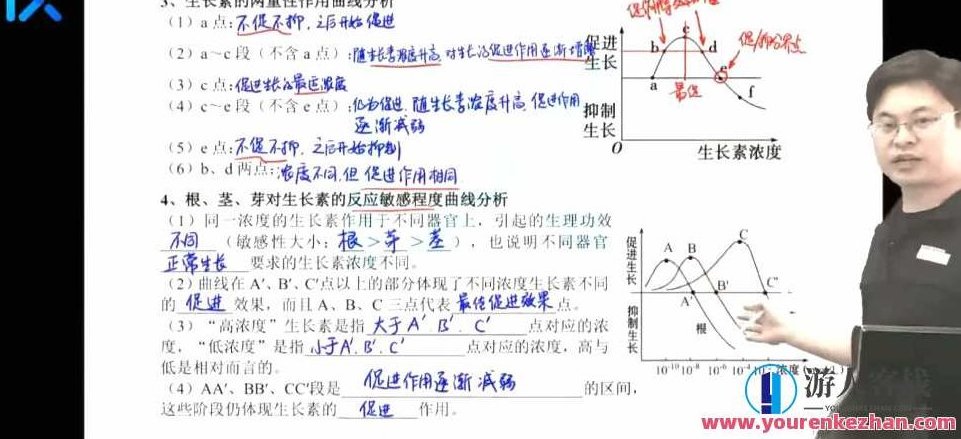 3、生长素的两重性作用曲线分析
（1）a点：不促不抑，之后开始促进
（2）a～c段（不含a点）：随生长素浓度升高，对生长的促进作用逐渐增强
（3）c点：促进生长的最适浓度
（4）c～e段（不含e点）：仍为促进，随生长素浓度升高，促进作用
逐渐减弱
（5）e点：不促不抑，之后开始抑制
（6）b、d两点：浓度不同，但促进作用相同
促进
生长
抑制
生长
a
b
c
d
e
f
最促
促/抑分界点
O
生长素浓度
4、根、茎、芽对生长素的反应敏感程度曲线分析
（1）同一浓度的生长素作用于不同器官上，引起的生理功效
不同（敏感性大小：根>芽>茎），也说明不同器官
正常生长 要求的生长素浓度不同。
（2）曲线在A′、B′、C′点以上的部分体现了不同浓度生长素不同
的 促进 效果，而且A、B、C三点代表 最佳促进效果 点。
（3）“高浓度”生长素是指 大于A′、B′、C′ 点对应的浓
度，“低浓度”是指 小于A′、B′、C′ 点对应的浓度，高与
低是相对而言的。
（4）AA′、BB′、CC′段是 促进作用逐渐减弱 的区间，
这些阶段仍体现生长素的 促进 作用。
促进生长
抑制生长
A B C
A′ B′ C′
根
10⁻¹⁰ 10⁻⁸ 10⁻⁶ 10⁻⁴
浓度
游人客栈
www.yourenkezhan.com